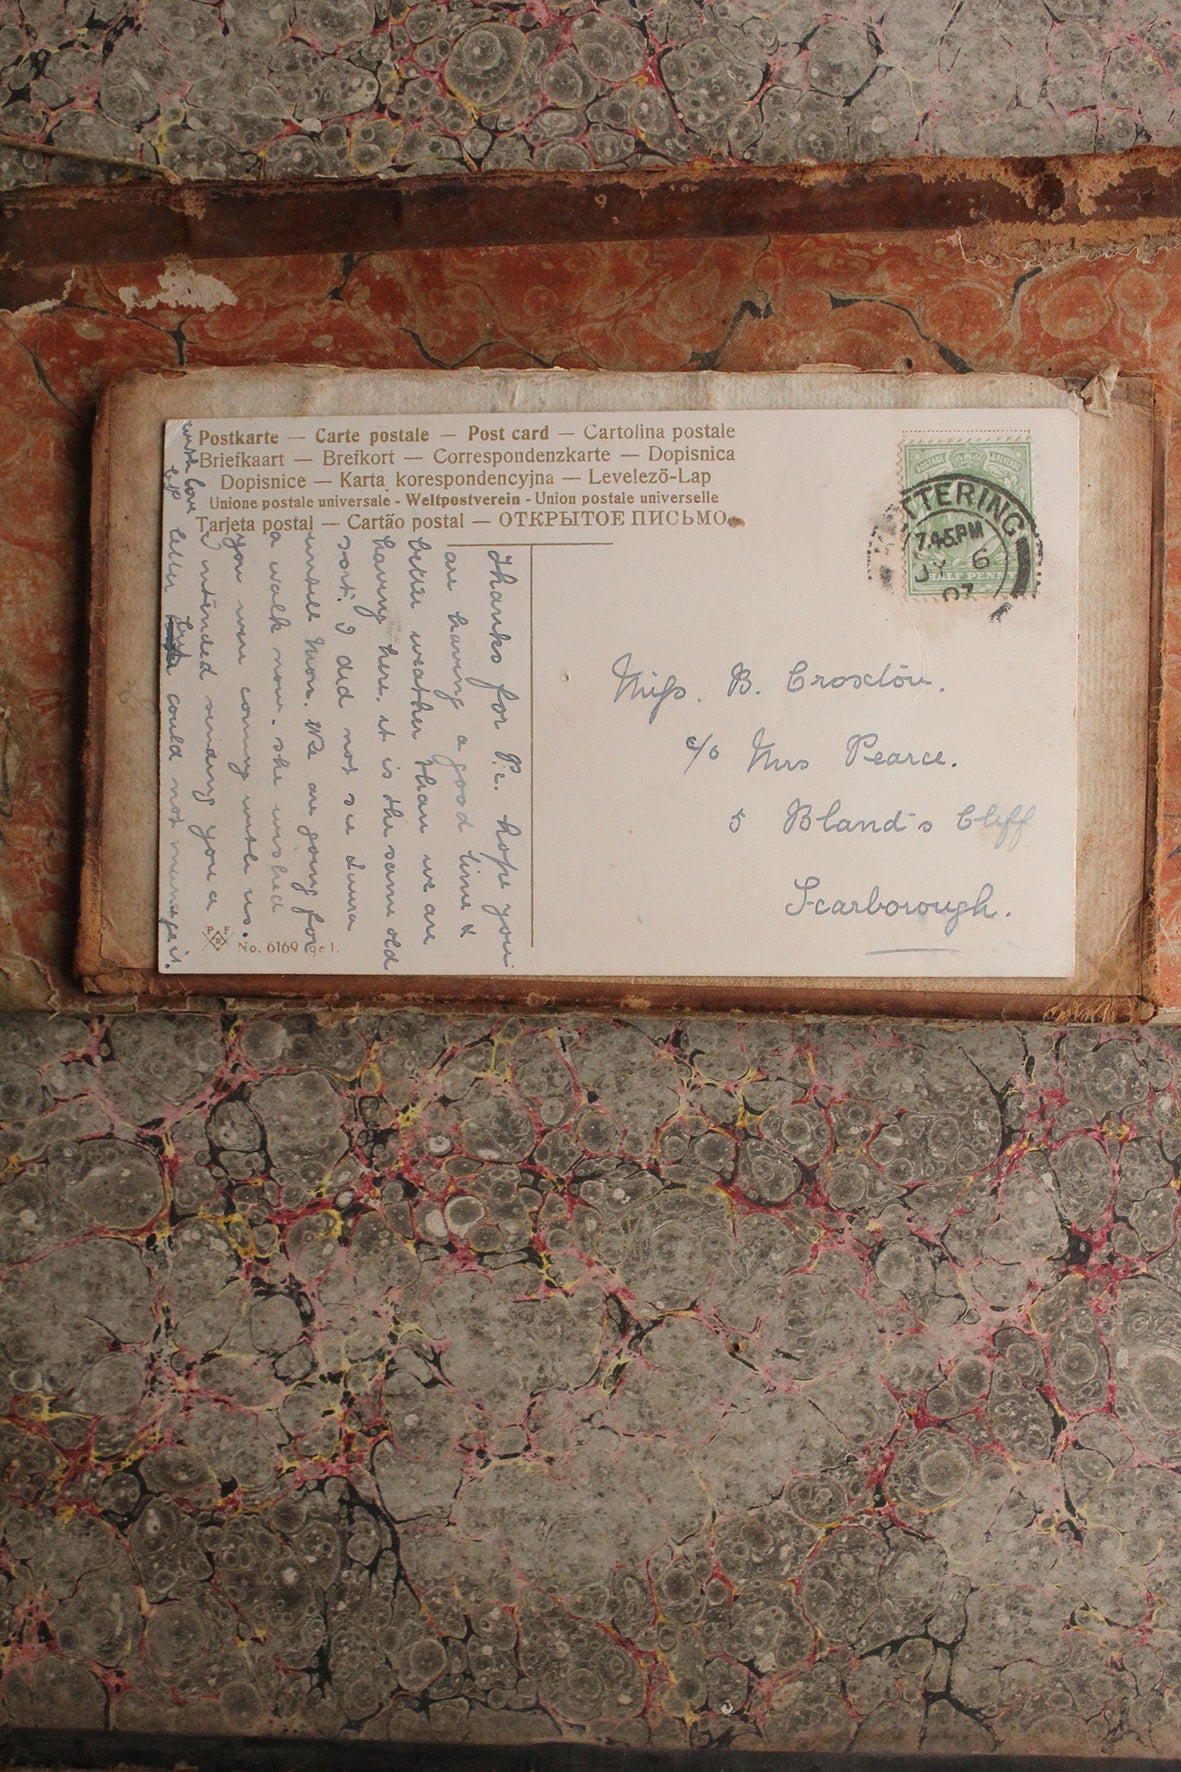 Postkarte — Carte postale — Post card — Cartolina postale
Briefkaart — Brefkort — Correspondenzkarte — Dopisnica
Dopisnice — Karta korespondencyjna — Levelező-Lap
Unione postale universale - Weltpostverein - Union postale universelle
Tarjeta postal — Cartão postal — ОТКРЫТОЕ ПИСЬМО
KETTERING
7.45.PM
JY 6
07
HALF PENNY
Miss. B. Croxton.
c/o Mrs Pearce.
5 Bland's Cliff
Scarborough.
Thanks for P.c. hope you
are having a good time &
better weather than we are
having here, it is the same old
sort. I did not see Laura
untill Mon. We are going for
a walk now. she wished
you were coming with us.
I intended sending you a
letter but could not manage it.
with love
P F B
No. 6169